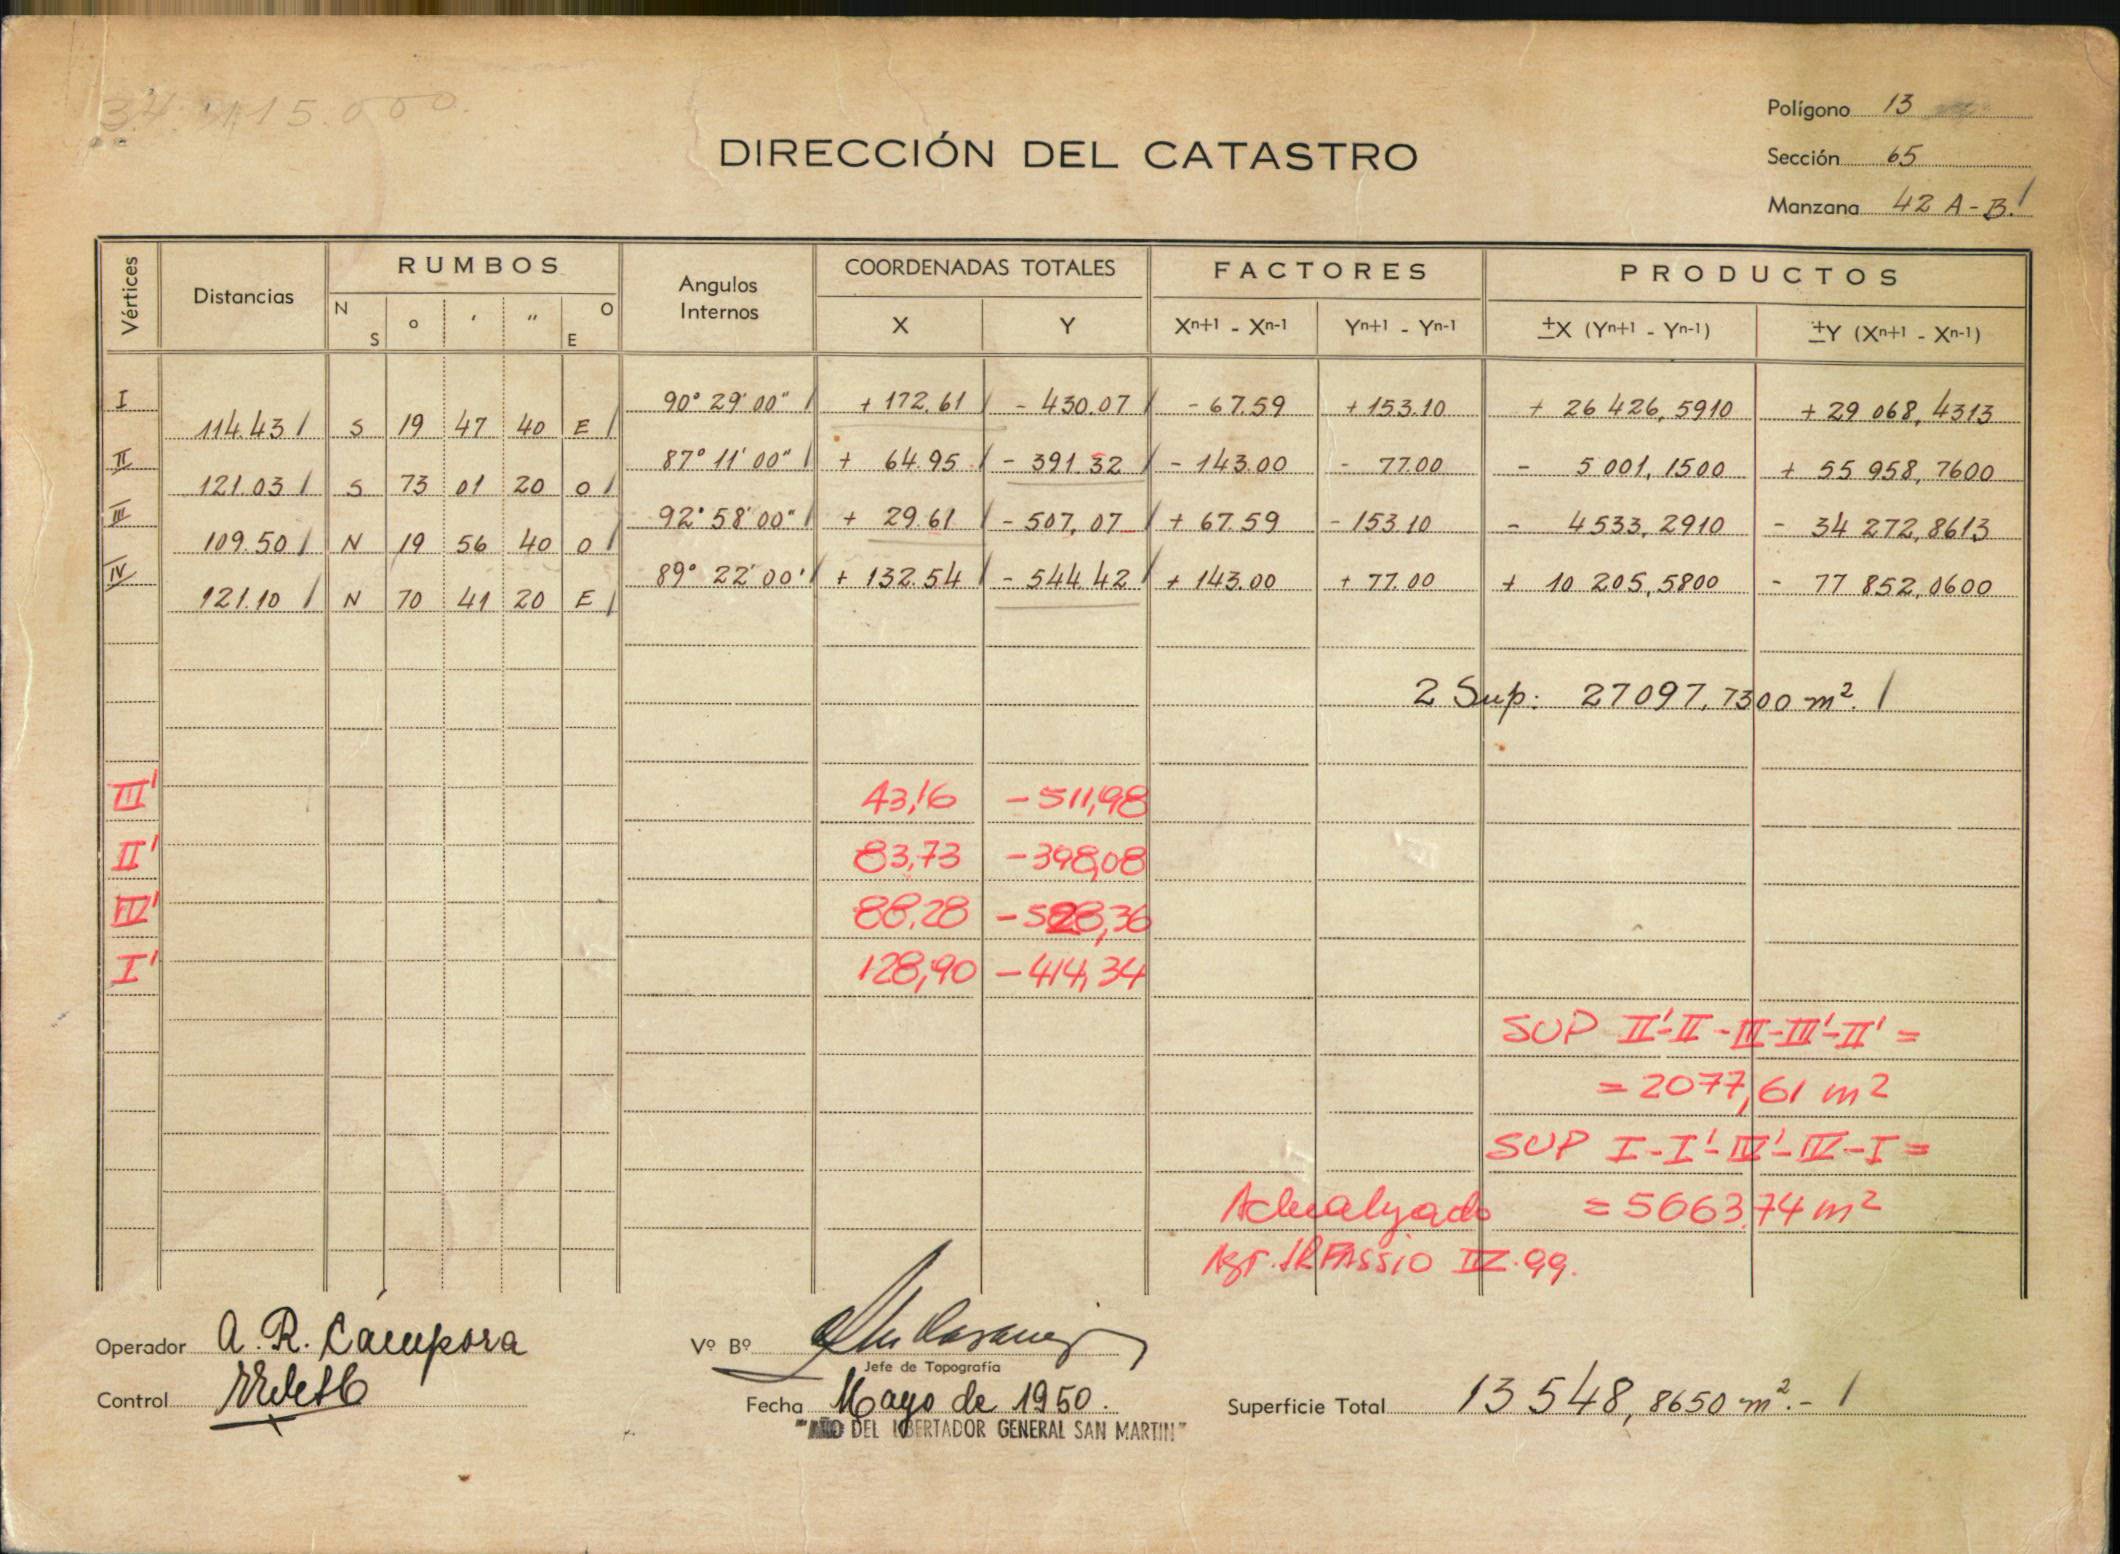 34. 15.000.
Polígono 13
DIRECCIÓN DEL CATASTRO
Sección 65
Manzana 42 A-B.
Vértices Distancias RUMBOS Angulos Internos COORDENADAS TOTALES FACTORES PRODUCTOS
N S ° ' " O E X Y Xn+1 - Xn-1 Yn+1 - Yn-1 ±X (Yn+1 - Yn-1) ±Y (Xn+1 - Xn-1)
I 90° 29' 00" + 172.61 - 430.07 - 67.59 + 153.10 + 26 426,5910 + 29 068,4313
114.43 S 19 47 40 E
II 87° 11' 00" + 64.95 - 391.32 - 143.00 - 77.00 - 5 001,1500 + 55 958,7600
121.03 S 73 01 20 O
III 92° 58' 00" + 29.61 - 507,07 + 67.59 - 153.10 - 4533,2910 - 34 272,8613
109.50 N 19 56 40 O
IV 89° 22' 00' + 132.54 - 544.42 + 143.00 + 77.00 + 10 205,5800 - 77 852,0600
121.10 N 70 41 20 E
2 Sup: 27097,7300 m².
III' 43,16 -511,98
II' 83,73 -398,08
IV' 88,28 -528,36
I' 128,90 -414,34
SUP II'-II-III-III'-II' =
= 2077,61 m2
SUP I-I'-IV'-IV-I =
Actualizado = 5663,74 m2
Agr. FASSIO IV.99.
Operador A. R. Cámpora
Vº Bº
Jefe de Topografía
Control
Fecha Mayo de 1950.
Superficie Total 13 548,8650 m².-
"AÑO DEL LIBERTADOR GENERAL SAN MARTIN"